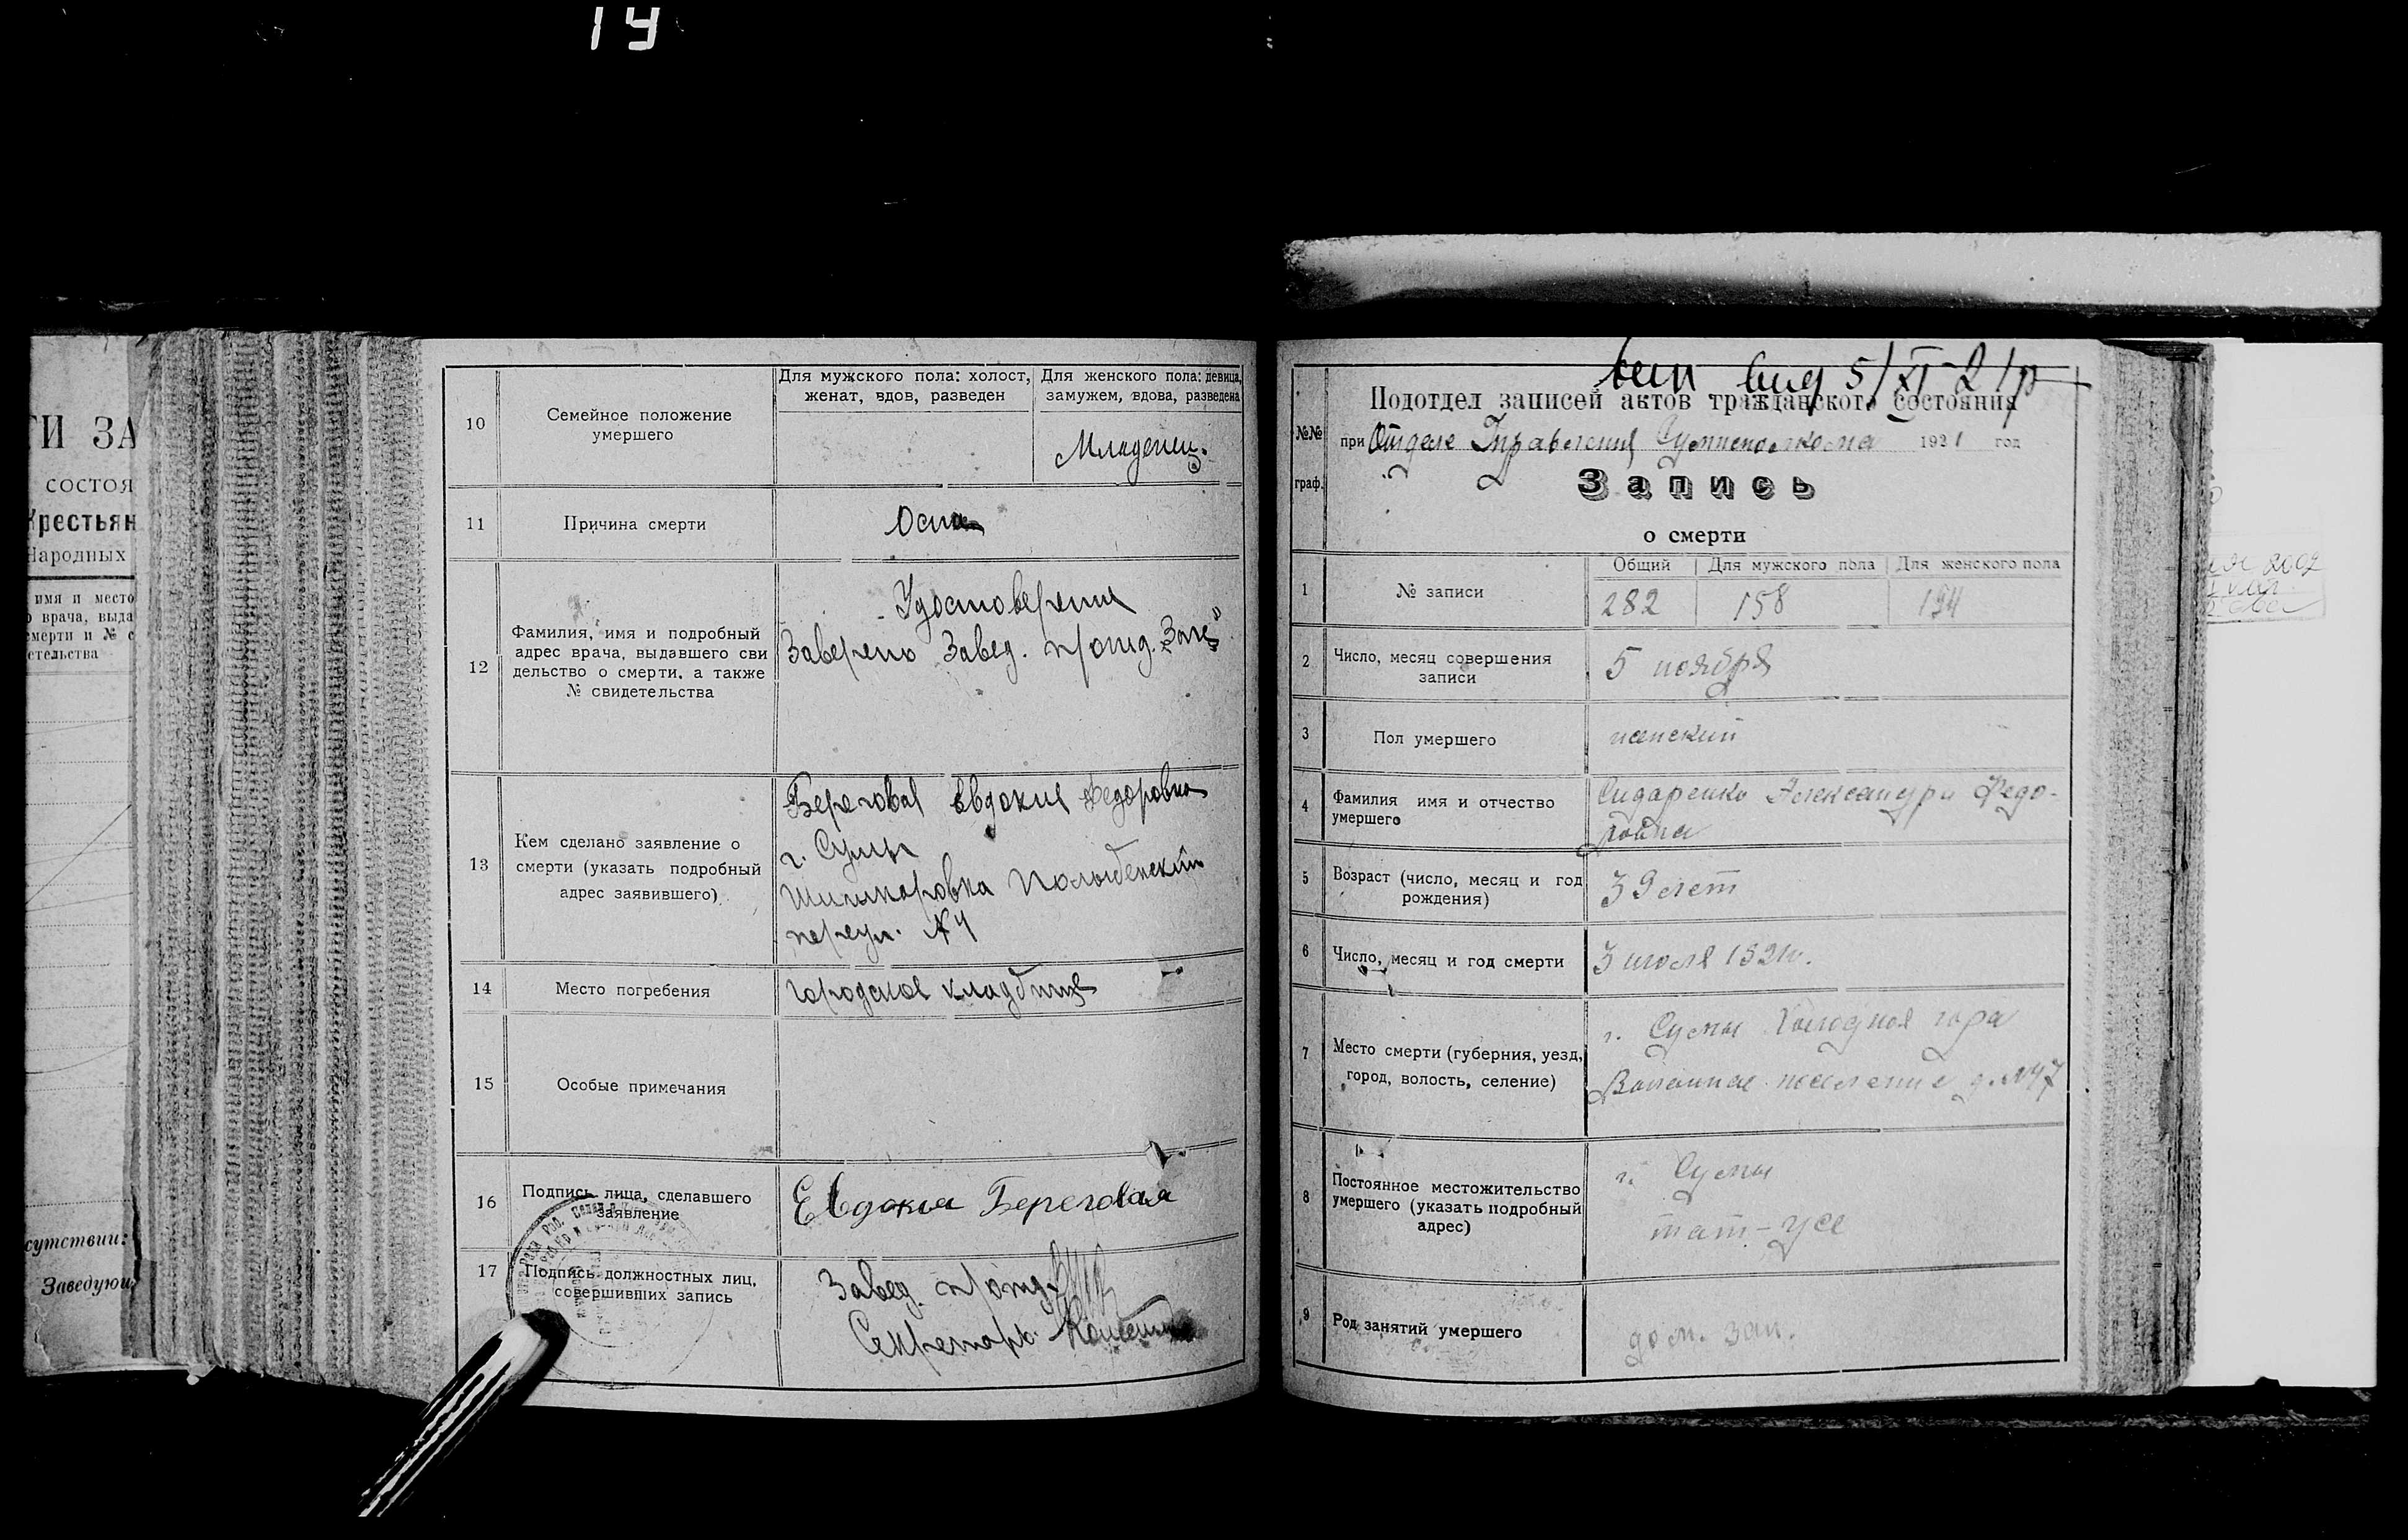 14
ТИ ЗА
состоя
Крестьян
Народных
имя и место
о врача, выда
смерти и № с
етельства
сутствии:
Заведую
10 Семейное положение умершего
Для мужского пола: холост, женат, вдов, разведен
Для женского пола: девица, замужем, вдова, разведена
Младенец.
11 Причина смерти
Оспа
12 Фамилия, имя и подробный
адрес врача, выдавшего сви
дельство о смерти, а также
№ свидетельства
Удостоверение
Заверено Завед. п/отд.
13 Кем сделано заявление о
смерти (указать подробный
адрес заявившего)
Береговая Евдокия Федоровна
г. Сумы
переул. №4
14 Место погребения
городское кладбище
15 Особые примечания
16 Подпись лица, сделавшего
заявление
Евдокия Береговая
17 Подпись должностных лиц,
совершивших запись
Завед. п/отд.
Секретарь
5/XI-21р
Подотдел записей актов гражданского состояния
№№ граф.
при Отделе Управления 1921 год
Запись
о смерти
1 № записи
Общий Для мужского пола Для женского пола
282 158 134
2 Число, месяц совершения
записи
5 ноября
3 Пол умершего
женский
4 Фамилия имя и отчество
умершего
Сидаренко Александра Федо-
ровна
5 Возраст (число, месяц и год
рождения)
39 лет
6 Число, месяц и год смерти
3 июля 1921г.
7 Место смерти (губерния, уезд,
город, волость, селение)
г. Сумы Холодная гора
поселение д. №47
8 Постоянное местожительство
умершего (указать подробный
адрес)
г. Сумы
там-же
9 Род занятий умершего
дом. зан.